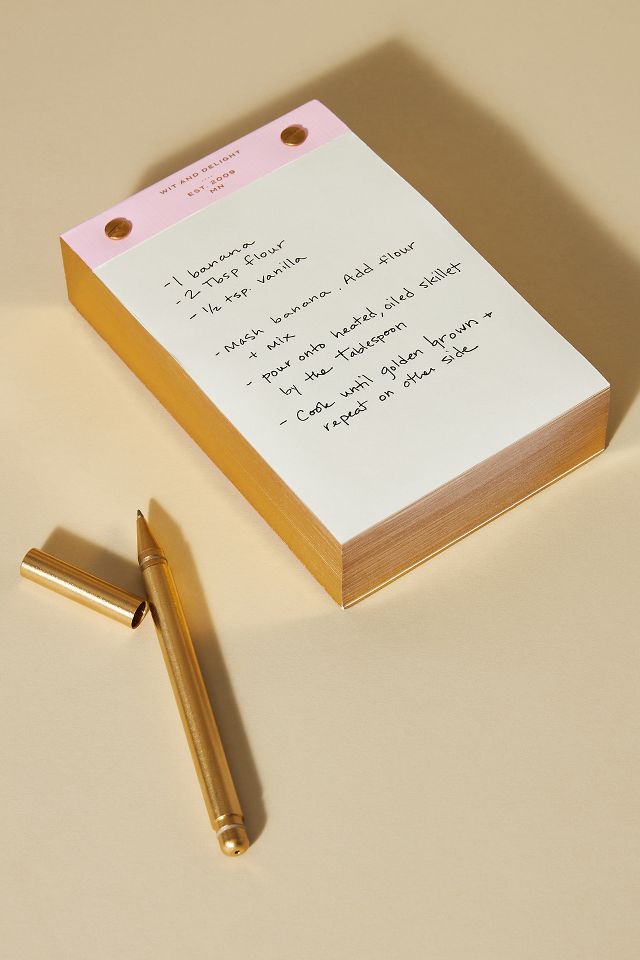 WIT AND DELIGHT
....
EST. 2009
MN
- 1 banana
- 2 Tbsp flour
- ½ tsp. vanilla
- Mash banana. Add flour
+ mix
- pour onto heated, oiled skillet
by the tablespoon
- Cook until golden brown +
repeat on other side